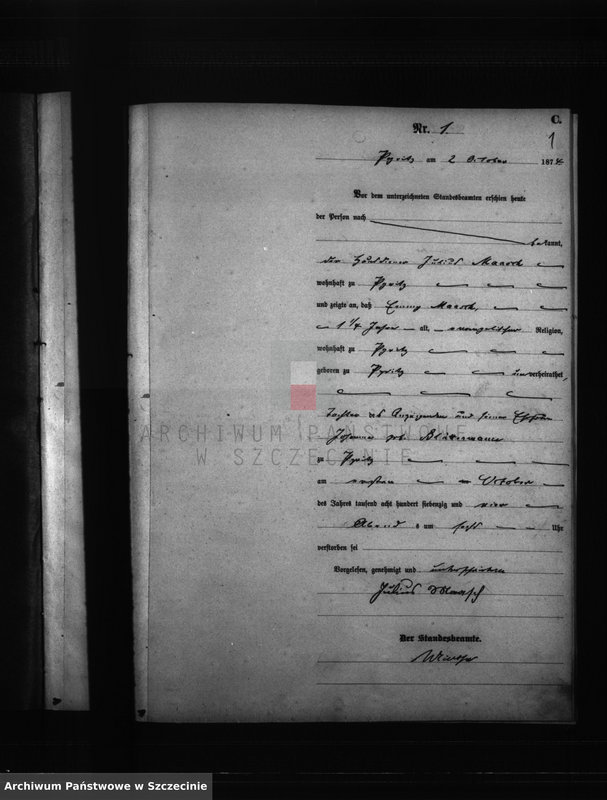 C.
Nr. 1
1
Pyritz am 2 October 1874
Vor dem unterzeichneten Standesbeamten erschien heute
der Person nach
bekannt,
der Julius Maasch
wohnhaft zu Pyritz
und zeigte an, daß Emmy Maasch,
1 1/4 Jahr alt, evangelischer Religion,
wohnhaft zu Pyritz
geboren zu Pyritz unverheirathet,
Tochter des Anzeigenden und seiner Ehefrau
Johanne geb.
zu Pyritz
am ersten October
des Jahres tausend acht hundert siebenzig und vier
Abends um sechs Uhr
verstorben sei
Vorgelesen, genehmigt und unterschrieben
Julius Maasch
Der Standesbeamte.
ARCHIWUM PAŃSTWOWE
W SZCZECINIE
Archiwum Państwowe w Szczecinie